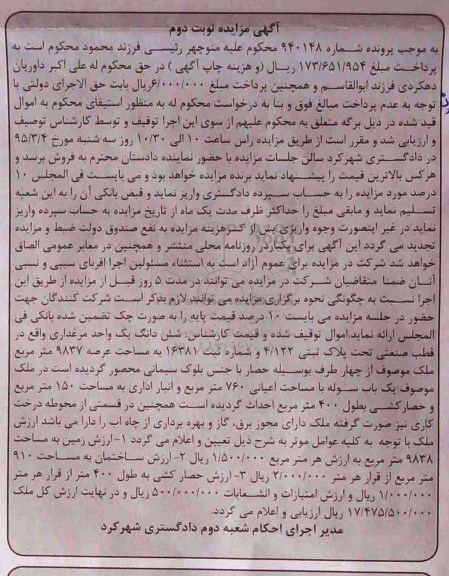 آگهی مزایده نوبت دوم
به موجب پرونده شماره ۹۴۰۱۴۸ محکوم علیه منوچهر رئیسی فرزند محمود محکوم است به
پرداخت مبلغ ۱۷۳/۶۵۱/۹۵۴ ریال (و هزینه چاپ آگهی ) در حق محکوم له علی اکبر داوریان
دهکردی فرزند ابوالقاسم و همچنین پرداخت مبلغ ۶/۰۰۰/۰۰۰ریال بابت حق الاجرای دولتی با
توجه به عدم پرداخت مبالغ فوق و بنا به درخواست محکوم له به منظور استیفای محکوم به اموال
قید شده در ذیل برگه متعلق به محکوم علیهم از سوی این اجرا توقیف و توسط کارشناس توصیف
و ارزیابی شد و مقرر است از طریق مزایده راس ساعت ۱۰ الی ۱۰/۳۰ روز سه شنبه مورخ ۹۵/۳/۴
در دادگستری شهرکرد سالن جلسات مزایده با حضور نماینده دادستان محترم به فروش برسد و
هرکس بالاترین قیمت را پیشنهاد نماید برنده مزایده خواهد بود و می بایست فی المجلس ۱۰
درصد مورد مزایده را به حساب سپرده دادگستری واریز نماید و قبض بانکی آن را به این شعبه
تسلیم نماید و مابقی مبلغ را حداکثر ظرف مدت یک ماه از تاریخ مزایده به حساب سپرده واریز
نماید در غیر اینصورت وجوه واریزی پس از کسرهزینه مزایده به نفع صندوق دولت ضبط و مزایده
تجدید می گردد این آگهی برای یکبار در روزنامه محلی منتشر و همچنین در معابر عمومی الصاق
خواهد شد شرکت در مزایده برای عموم آزاد است به استثناء مسئولین اجرا اقربای سببی و نسبی
آنان ضمنا متقاضیان شرکت در مزایده می توانند در مدت ۵ روز قبل از مزایده از طریق این
اجرا نسبت به چگونگی نحوه برگزاری مزایده می توانند لازم بذکر است شرکت کنندگان جهت
حضور در جلسه مزایده می بایست ۱۰ درصد قیمت پایه را به صورت چک تضمین شده بانکی فی
المجلس ارائه نماید.اموال توقیف شده و قیمت کارشناس: شش دانگ یک واحد مرغداری واقع در
قطب صنعتی تحت پلاک ثبتی ۴/۱۲۲ و شماره ثبت ۱۶۳۸۱ به مساحت عرصه ۹۸۳۷ متر مربع
ملک موصوف از چهار طرف بوسیله حصار با جنس بلوک سیمانی محصور گردیده است در ملک
موصوف یک باب سوله با مساحت اعیانی ۷۶۰ متر مربع و انبار اداری به مساحت ۱۵۰ متر مربع
و حصارکشی بطول ۴۰۰ متر مربع احداث گردیده است همچنین در قسمتی از محوطه درخت
کاری نیز صورت گرفته ملک دارای مجوز برق، گاز و بهره برداری از چاه آب را دارا می باشد ارزش
ملک با توجه به کلیه عوامل موثر به شرح ذیل تعیین و اعلام می گردد ۱-ارزش زمین به مساحت
۹۸۳۸ متر مربع به ارزش هر متر مربع ۱/۵۰۰/۰۰۰ ریال ۲- ارزش ساختمان به مساحت ۹۱۰
متر مربع از قرار هر متر ۲/۰۰۰/۰۰۰ ریال ۳- ارزش حصار کشی به طول ۴۰۰ متر از قرار هر متر
۱/۰۰۰/۰۰۰ ریال و ارزش امتیازات و انشعابات ۵۰۰/۰۰۰/۰۰۰ ریال و در نهایت ارزش کل ملک
۱۷/۴۷۵/۵۰۰/۰۰۰ ریال ارزیابی و اعلام می گردد.
مدیر اجرای احکام شعبه دوم دادگستری شهرکرد